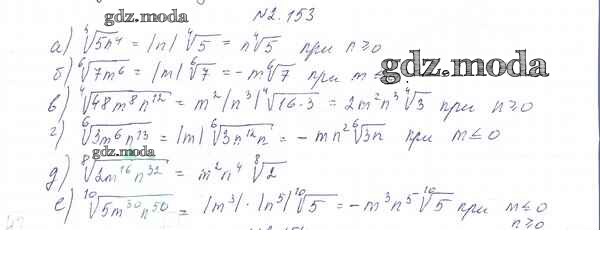 gdz.moda
№2.153
а) ⁴√5n⁴ = |n| ⁴√5 = n ⁴√5 при n≥0
б) ⁶√7m⁶ = |m| ⁶√7 = -m ⁶√7 при m ≤
gdz.moda
в) ⁴√48m⁸n¹² = m²|n³| ⁴√16·3 = 2m²n³ ⁴√3 при n≥0
г) ⁶√3m⁶n¹³ = |m| ⁶√3n¹²n = -mn² ⁶√3n при m≤0
gdz.moda
д) ⁸√2m¹⁶n³² = m²n⁴ ⁸√2
е) ¹⁰√5m³⁰n⁵⁰ = |m³|·|n⁵| ¹⁰√5 = -m³n⁵ ¹⁰√5 при m≤0
n≥0